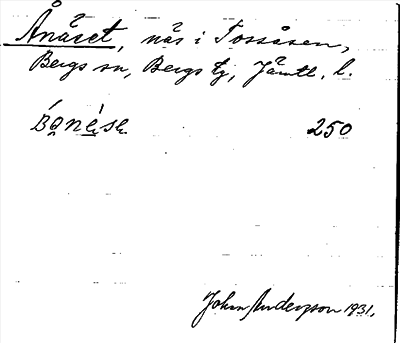 Ånäset, näs i Tossåsen,
Bergs sn, Bergs tg, Jämtl. l.
250
Johan Anderzson 1931.